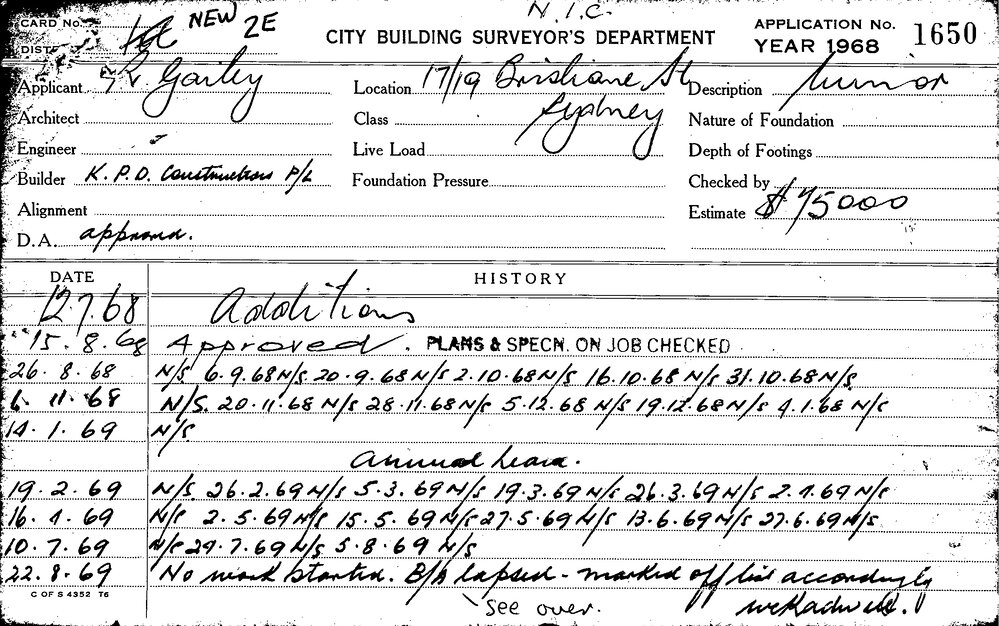 N.I.C.
CARD No. NEW 2E
DIST.
CITY BUILDING SURVEYOR'S DEPARTMENT
APPLICATION No. 1650
YEAR 1968
Applicant R. Gailey Location 17/19 Brisbane St Description Junior
Architect Class Sydney Nature of Foundation
Engineer Live Load Depth of Footings
Builder K.P.D. Constructions P/L Foundation Pressure Checked by
Alignment Estimate $75000
D.A. approved.
DATE HISTORY
12.7.68 Additions
15.8.68 Approved. PLANS & SPECN. ON JOB CHECKED
26.8.68 N/S 6.9.68 N/S 20.9.68 N/S 2.10.68 N/S 16.10.68 N/S 31.10.68 N/S
6.11.68 N/S. 20.11.68 N/S 28.11.68 N/S 5.12.68 N/S 19.12.68 N/S 9.1.68 N/S
14.1.69 N/S
Annual leave.
19.2.69 N/S 26.2.69 N/S 5.3.69 N/S 19.3.69 N/S 26.3.69 N/S 2.4.69 N/S
16.4.69 N/S 2.5.69 N/S 15.5.69 N/S 27.5.69 N/S 13.6.69 N/S 27.6.69 N/S
10.7.69 N/S 29.7.69 N/S 5.8.69 N/S
22.8.69 No work started. B/A lapsed - marked off list accordingly
C OF S 4352 T6
see over.